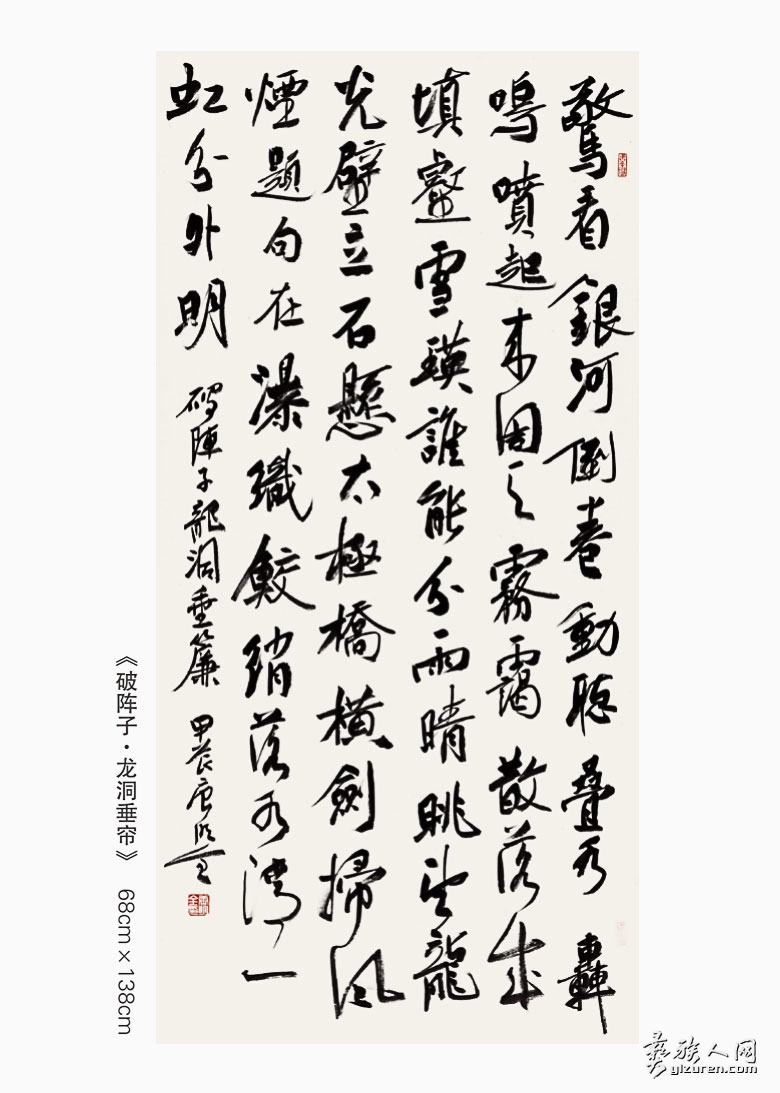 驚看銀河倒卷動聽疊水轟
鳴噴起霧靄散落成
填壑雪瑛誰能分雨晴眺望龍
光壁立石懸太極橋橫劍掃風
煙題句在瀑織鮫綃落水灣一
虹分外明 破陣子龍洞垂簾 甲辰
《破阵子·龙洞垂帘》 68cm×138cm
彝族人网
yizuren.com